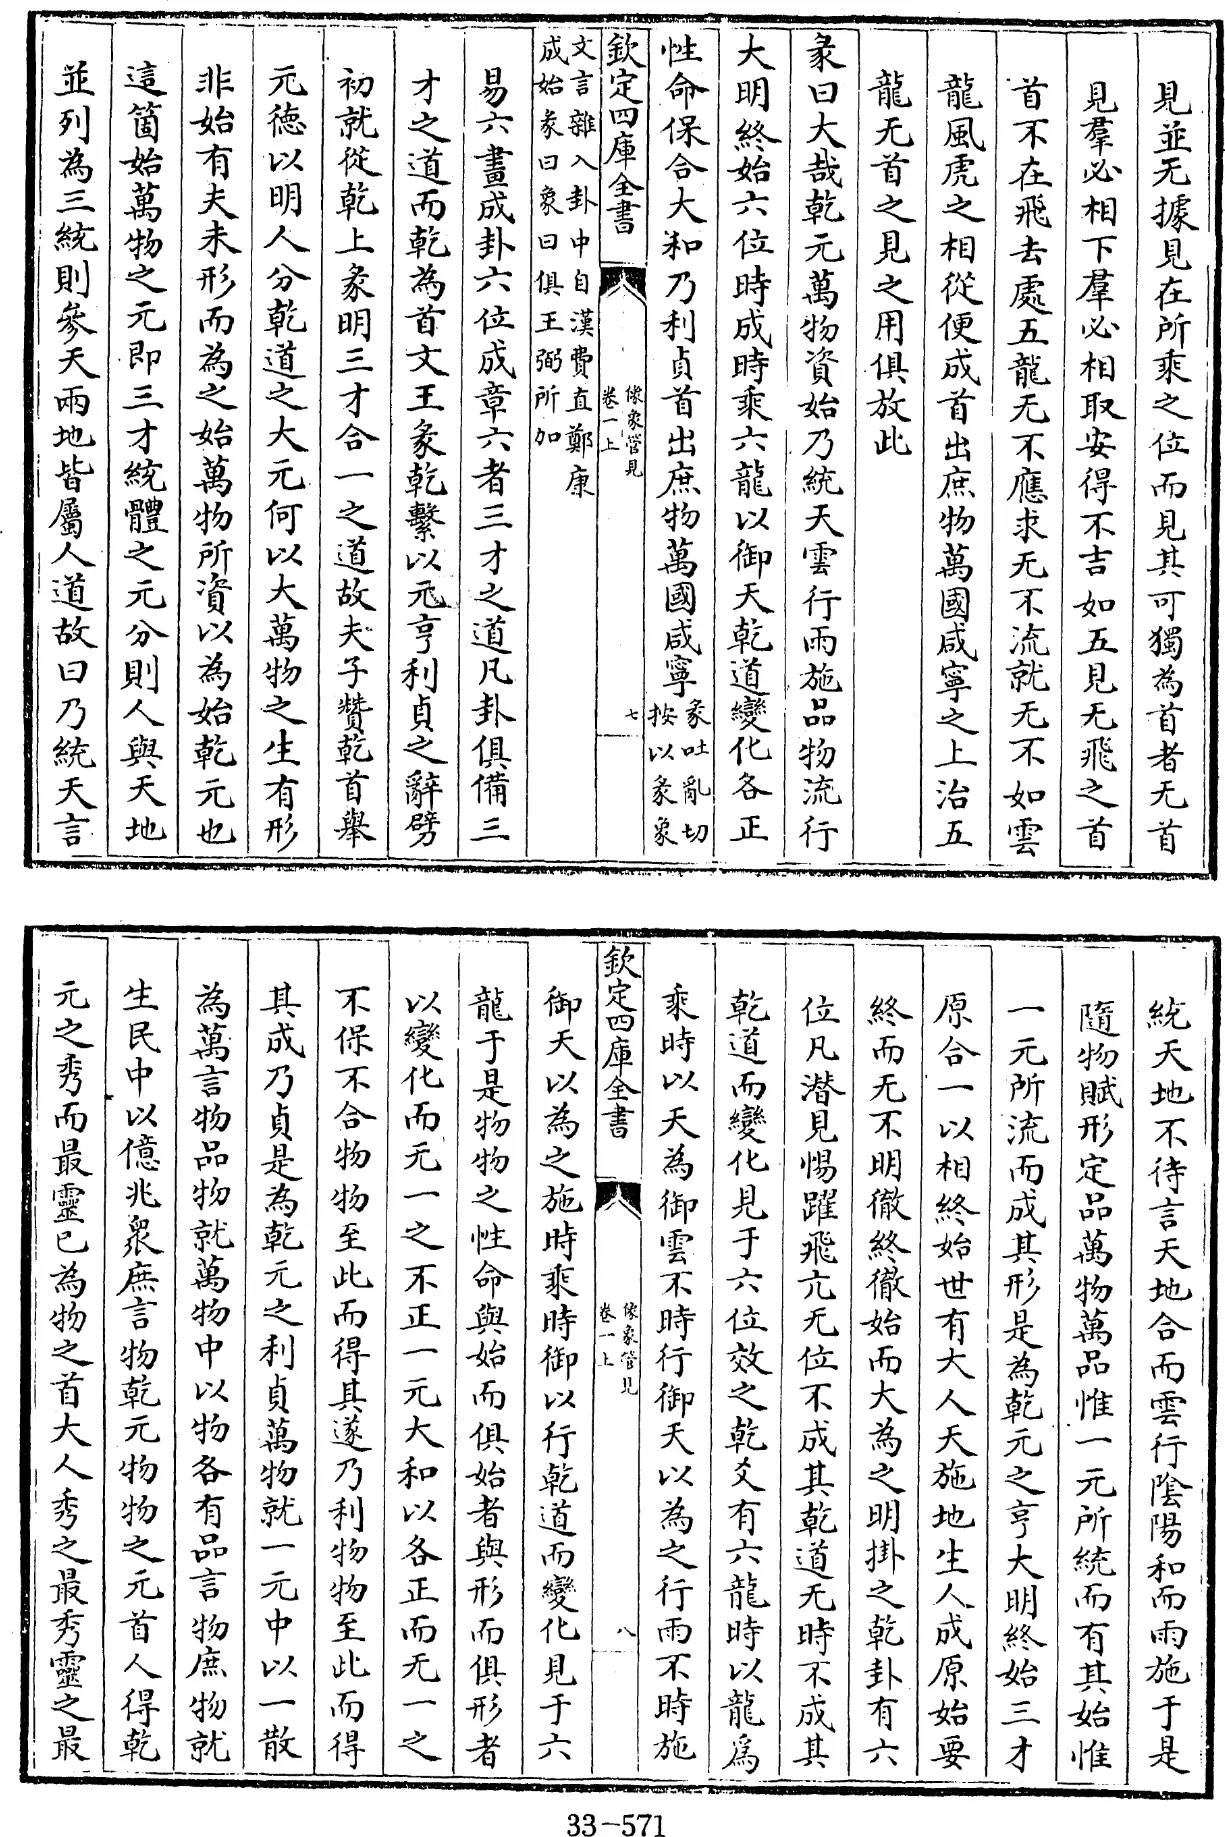 見並无據見在所乘之位而見其可獨為首者无首
見羣必相下羣必相取安得不吉如五見无飛之首
首不在飛去處五龍无不應求无不流就无不如雲
龍風虎之相從便成首出庶物萬國咸寧之上治五
龍无首之見之用俱放此
彖曰大哉乾元萬物資始乃統天雲行雨施品物流行
大明終始六位時成時乘六龍以御天乾道變化各正
性命保合大和乃利貞首出庶物萬國咸寧彖吐亂切
按以彖象
欽定四庫全書
像象管見
卷一上
七
文言雜入卦中自漢費直鄭康
成始彖曰象曰俱王弼所加
易六畫成卦六位成章六者三才之道凡卦俱備三
才之道而乾為首文王彖乾繫以元亨利貞之辭劈
初就從乾上彖明三才合一之道故夫子贊乾首舉
元德以明人分乾道之大元何以大萬物之生有形
非始有夫未形而為之始萬物所資以為始乾元也
這箇始萬物之元即三才統體之元分則人與天地
並列為三統則參天兩地皆屬人道故曰乃統天言
統天地不待言天地合而雲行陰陽和而雨施于是
隨物賦形定品萬物萬品惟一元所統而有其始惟
一元所流而成其形是為乾元之亨大明終始三才
原合一以相終始世有大人天施地生人成原始要
終而无不明徹終徹始而大為之明掛之乾卦有六
位凡潛見惕躍飛亢无位不成其乾道无時不成其
乾道而變化見于六位效之乾爻有六龍時以龍為
乘時以天為御雲不時行御天以為之行雨不時施
欽定四庫全書
像象管見
卷一上
八
御天以為之施時乘時御以行乾道而變化見于六
龍于是物物之性命與始而俱始者與形而俱形者
以變化而无一之不正一元大和以各正而无一之
不保不合物物至此而得其遂乃利物物至此而得
其成乃貞是為乾元之利貞萬物就一元中以一散
為萬言物品物就萬物中以物各有品言物庶物就
生民中以億兆衆庶言物乾元物物之元首人得乾
元之秀而最靈已為物之首大人秀之最秀靈之最
33-571